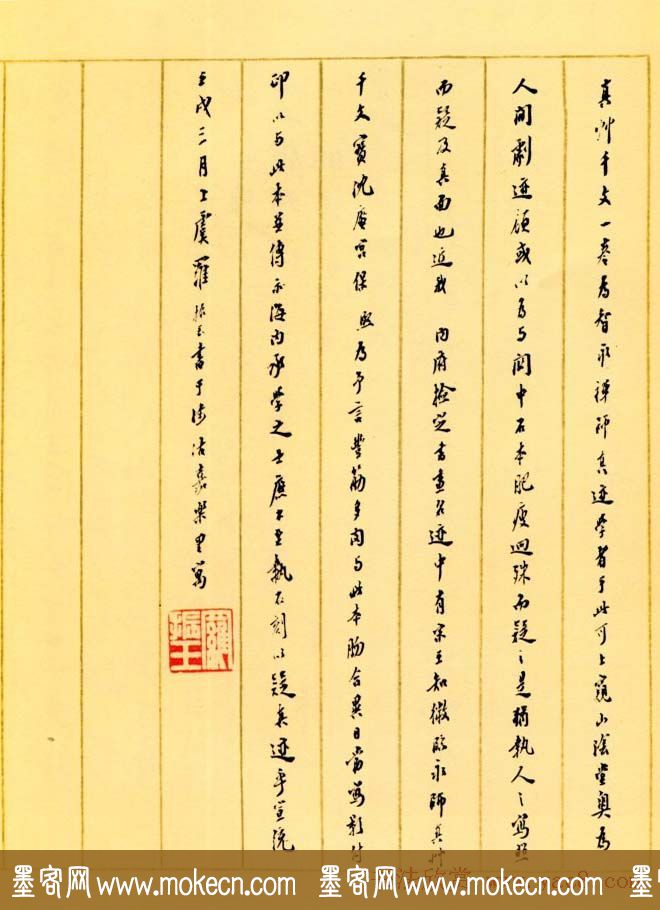 真艸千文一卷為智永禪師真迹學者于此可上窺山陰堂奧為
人間劇迹顧或以為與關中石本肥瘦迥殊而疑之是猶執人之寫照
而疑及真面也近我 內府檢定書畫名迹中有宋王知微臨永師真艸
千文寶沈庵宮保熙為予言豐筋多肉與此本脗合異日當寫影付
印以與此本並傳示海內承學之士應不至執石刻以疑真迹乎宣統
壬戌三月上虞羅振玉書于津沽嘉樂里寓
羅振玉
墨客网www.mokecn.com 墨客网www.mokecn.com 墨客